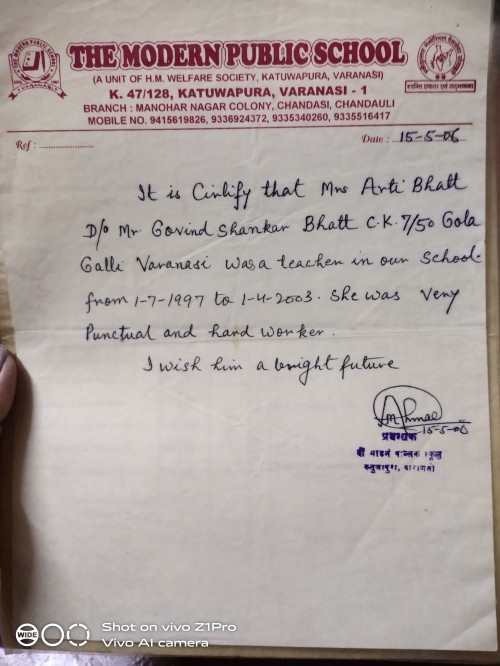 THE MODERN PUBLIC SCHOOL
(A UNIT OF H.M. WELFARE SOCIETY, KATUWAPURA, VARANASI)
K. 47/128, KATUWAPURA, VARANASI - 1
BRANCH : MANOHAR NAGAR COLONY, CHANDASI, CHANDAULI
MOBILE NO. 9415619826, 9336924372, 9335340260, 9335516417
Ref : ...................... Date : 15-5-06
It is Cirtify that Mrs Arti Bhatt
D/o Mr Govind Shankar Bhatt C.K. 7/50 Gola
Galli Varanasi was a teacher in our School.
from 1-7-1997 to 1-4-2003. She was very
Punctual and hard worker.
I wish him a bright future
15-5-06
प्रबन्धक
दी माडर्न पब्लिक स्कूल
कतुआपुरा, वाराणसी
Shot on vivo Z1Pro
WIDE
Vivo AI camera